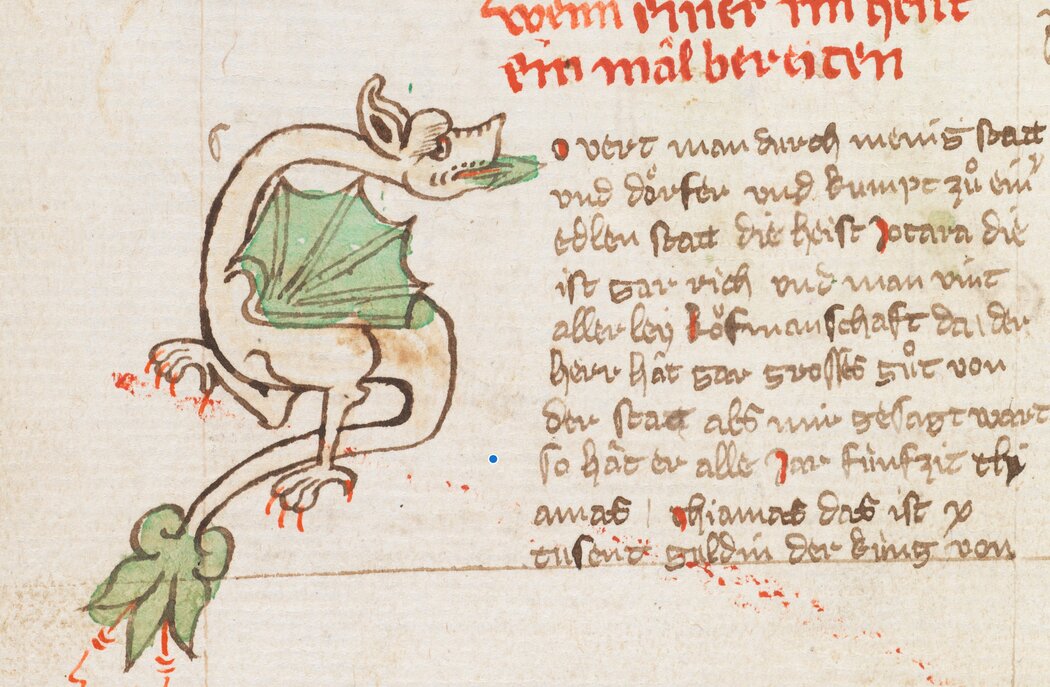 wenn einer im hett
ein mâl bereiten
S
o vert man durch menig statt
und dörfer und kumpt zů ein
edlen statt die heist Jocara die
ist gar rich und man vint
aller ley köfmanschaft da der
herr hât gar grosses gůt von
der statt als mir gesagt wart
so hât er alle Jar fünfzit thy
amas chiamas das ist x
tusent guldin der küng von